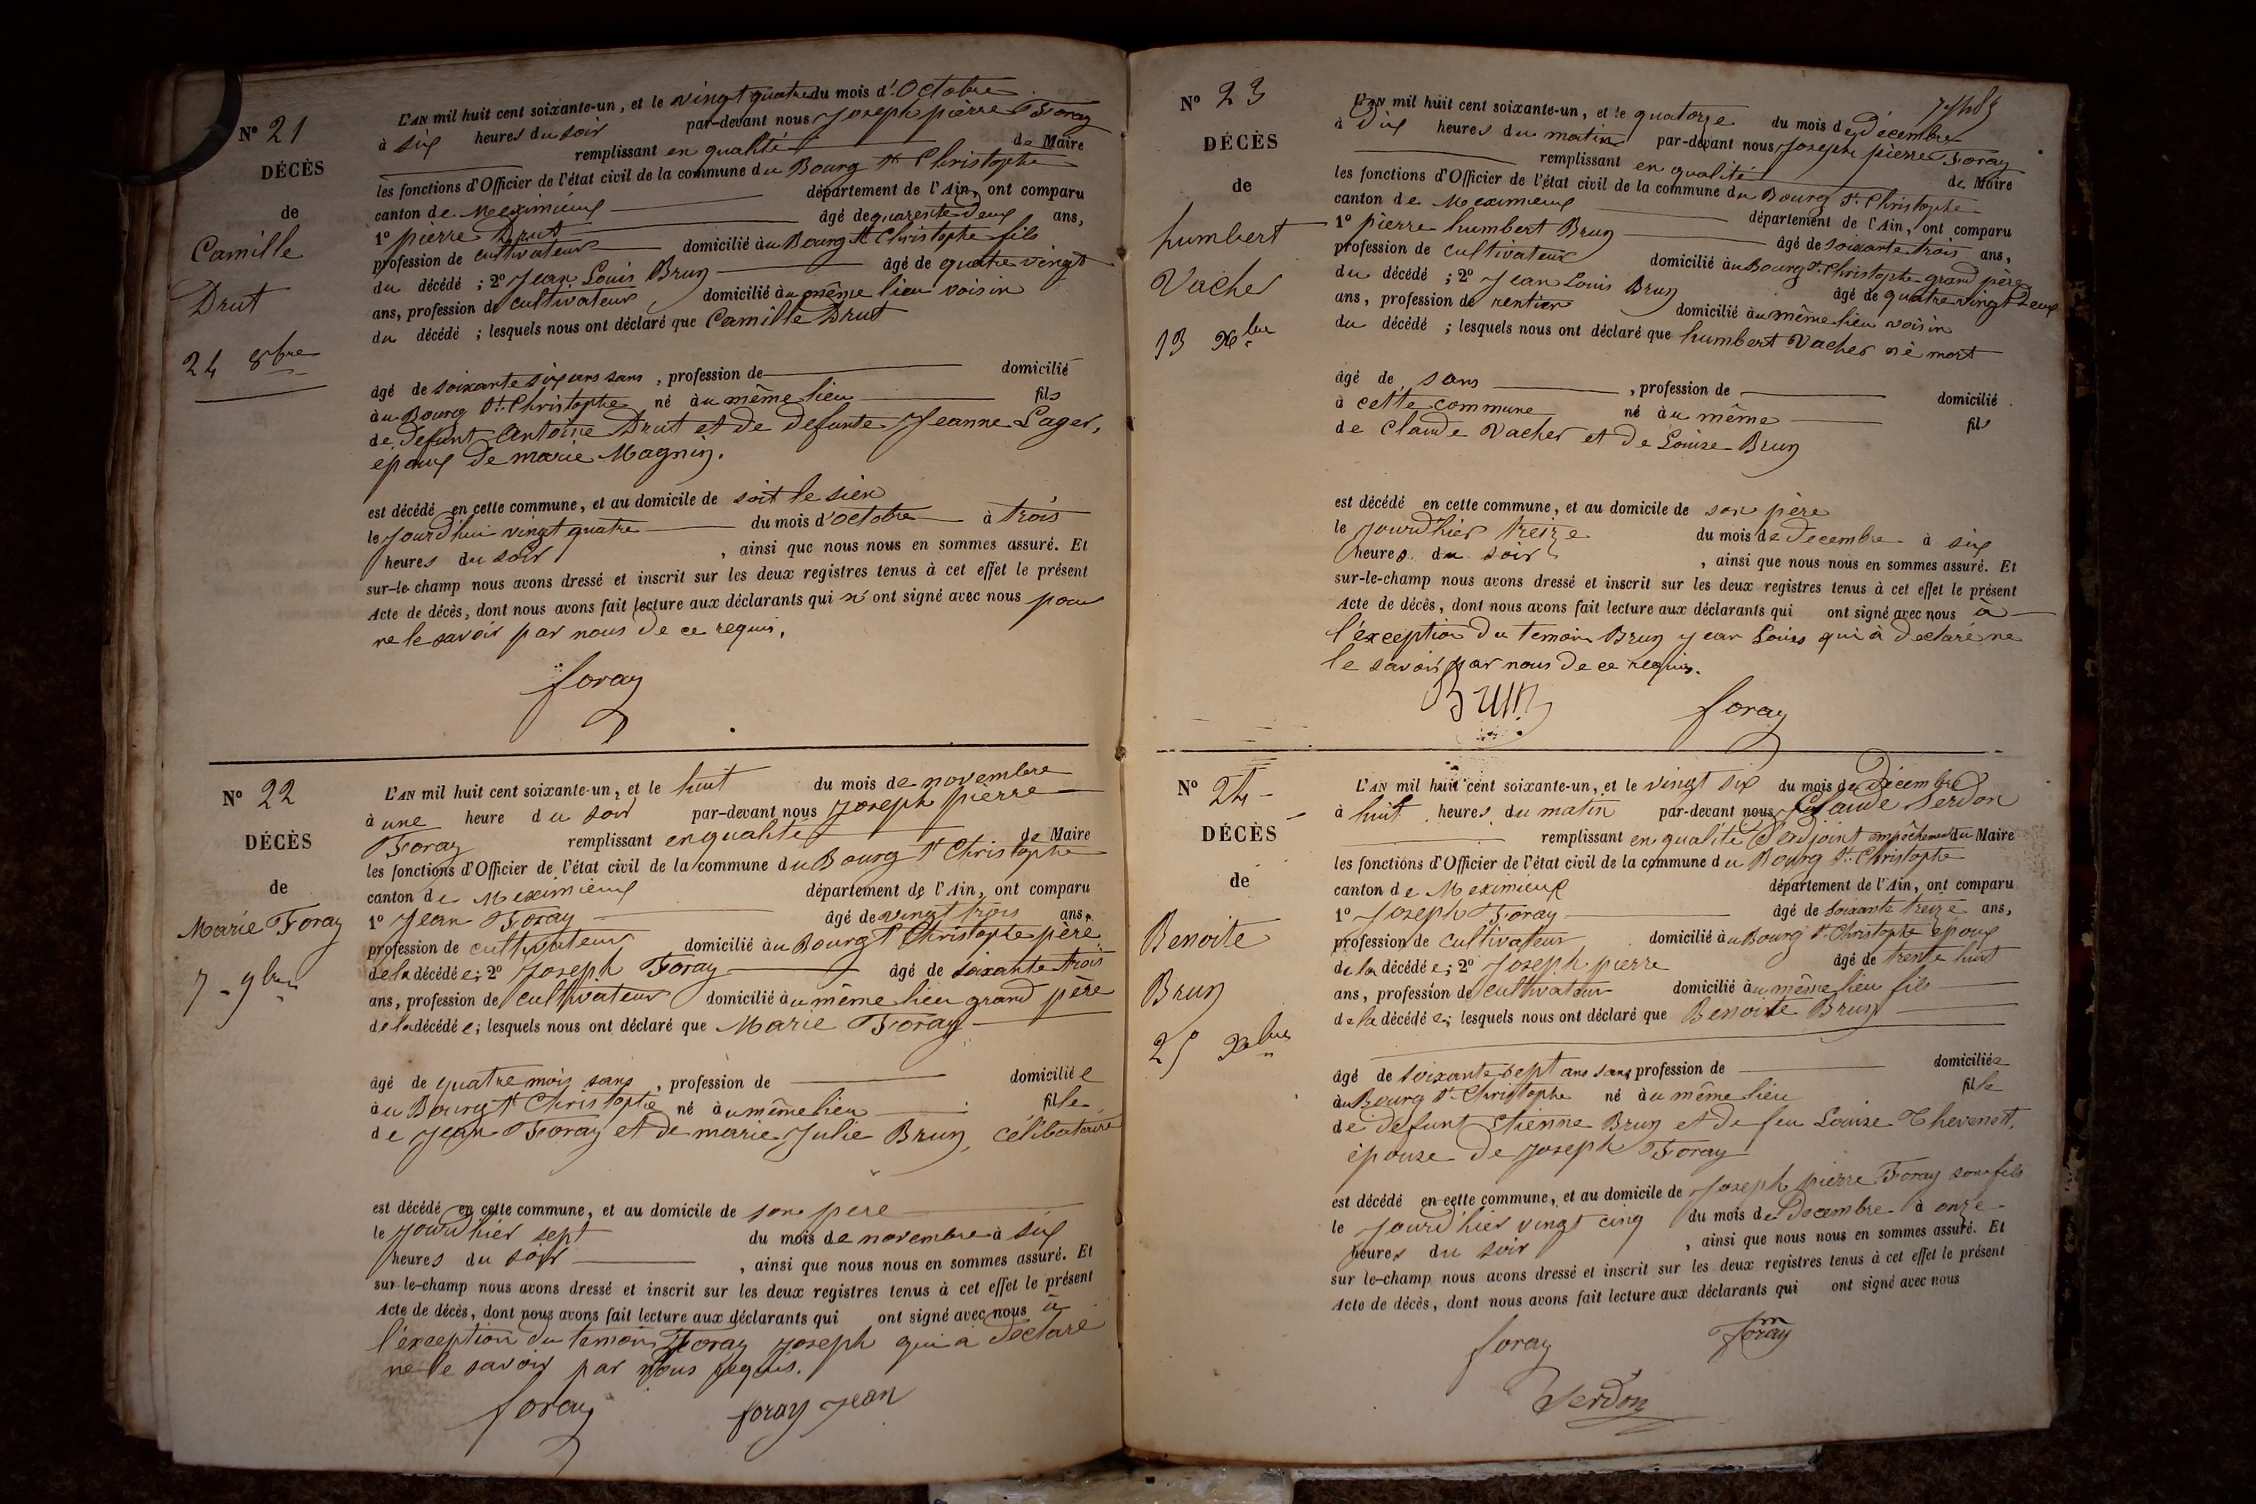 N° 21
DÉCÈS
de
Camille
Drut
24 8bre
L'AN mil huit cent soixante-un, et le vingt quatre du mois d'Octobre
à six heures du soir par-devant nous Joseph pierre Foray
remplissant en qualité de Maire
les fonctions d'Officier de l'état civil de la commune du Bourg St Christophe
canton de Meximieux département de l'Ain, ont comparu
1° pierre Drut âgé de quarente deux ans,
profession de cultivateur domicilié au Bourg St Christophe fils
du décédé ; 2° Jean Louis Brun âgé de quatre vingt
ans, profession de cultivateur domicilié au même lieu voisin
du décédé ; lesquels nous ont déclaré que Camille Drut
âgé de soixante six ans sans , profession de domicilié
au Bourg St Christophe né au même lieu fils
de defunt Antoine Drut et de defunte Jeanne Lager,
epoux de marie Magnin.
est décédé en cette commune, et au domicile de soit le sien
le jourd'hui vingt quatre du mois d'octobre à trois
heures du soir , ainsi que nous nous en sommes assuré. Et
sur-le-champ nous avons dressé et inscrit sur les deux registres tenus à cet effet le présent
Acte de décès, dont nous avons fait lecture aux déclarants qui n'ont signé avec nous pour
ne le savoir par nous de ce requis.
foray
N° 22
DÉCÈS
de
Marie Foray
7 - 9bre
L'AN mil huit cent soixante-un, et le huit du mois de novembre
à une heure du soir par-devant nous Joseph pierre
Foray remplissant en qualité de Maire
les fonctions d'Officier de l'état civil de la commune du Bourg St Christophe
canton de Meximieux département de l'Ain, ont comparu
1° Jean Foray âgé de vingt trois ans,
profession de cultivateur domicilié au Bourg St Christophe père
de la décédée; 2° Joseph Foray âgé de soixante trois
ans, profession de cultivateur domicilié au même lieu grand père
de la décédée; lesquels nous ont déclaré que Marie Foray
âgé de quatre mois sans , profession de domiciliée
au Bourg St Christophe né au même lieu fille
de Jean Foray et de marie Julie Brun, célibataire
est décédé en cette commune, et au domicile de son pere
le jourd'hier sept du mois de novembre à six
heures du soir , ainsi que nous nous en sommes assuré. Et
sur le-champ nous avons dressé et inscrit sur les deux registres tenus à cet effet le présent
Acte de décès, dont nous avons fait lecture aux déclarants qui ont signé avec nous à
l'éxception du temoin Foray Joseph qui a déclaré
ne le savoir par nous requis.
foray foray Jean
N° 23
DÉCÈS
de
humbert
Vacher
13 Xbre
L'AN mil huit cent soixante-un, et le quatorze du mois de Décembre
à dix heures du matin par-devant nous Joseph pierre Foray
remplissant en qualité de Maire
les fonctions d'Officier de l'état civil de la commune du Bourg St Christophe
canton de Meximieux département de l'Ain, ont comparu
1° pierre humbert Brun âgé de soixante trois ans,
profession de cultivateur domicilié au Bourg St Christophe grand père
du décédé ; 2° Jean Louis Brun âgé de quatre vingt deux
ans, profession de rentier domicilié au même lieu voisin
du décédé ; lesquels nous ont déclaré que humbert Vacher né mort
âgé de sans , profession de domicilié
à cette commune né au même fils
de Claude Vacher et de Louise Brun
est décédé en cette commune, et au domicile de son père
le jourd'hier treize du mois de decembre à six
heures du soir , ainsi que nous nous en sommes assuré. Et
sur-le-champ nous avons dressé et inscrit sur les deux registres tenus à cet effet le présent
Acte de décès, dont nous avons fait lecture aux déclarants qui ont signé avec nous à
l'éxception du temoin Brun Jean Louis qui à declaré ne
le savoir par nous de ce requis.
Brun foray
N° 24
DÉCÈS
de
Benoite
Brun
25 Xbre
L'AN mil huit cent soixante-un, et le vingt six du mois de Décembre
à huit heures du matin par-devant nous Claude Serdon
remplissant en qualité d'adjoint empêchement du Maire
les fonctions d'Officier de l'état civil de la commune du Bourg St Christophe
canton de Meximieux département de l'Ain, ont comparu
1° Joseph Foray âgé de soixante treize ans,
profession de cultivateur domicilié au Bourg St Christophe époux
de la décédée; 2° Joseph pierre âgé de trente huit
ans, profession de cultivateur domicilié au même lieu fils
de la décédée; lesquels nous ont déclaré que Benoite Brun
âgé de soixante sept ans sans profession de domiciliée
au Bourg St Christophe né au même lieu fille
de defunt etienne Brun et de feu Louise Thevenet,
épouse de Joseph Foray
est décédé en cette commune, et au domicile de Joseph pierre Foray son fils
le jourd'hier vingt cinq du mois de Decembre à onze
heures du soir , ainsi que nous nous en sommes assuré. Et
sur le-champ nous avons dressé et inscrit sur les deux registres tenus à cet effet le présent
Acte de décès, dont nous avons fait lecture aux déclarants qui ont signé avec nous
foray foray
Serdon